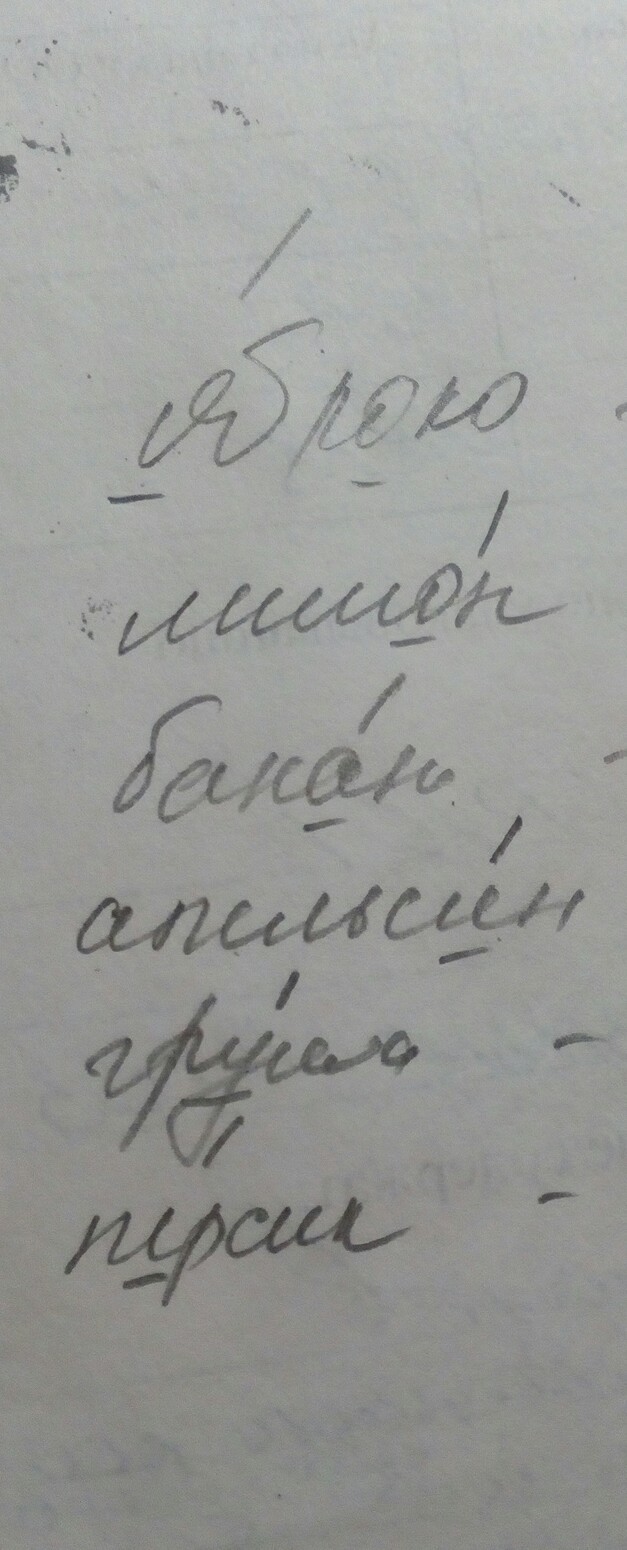 я́блоко -
лимо́н
бана́н -
апельси́н
гру́ша -
пе́рсик -